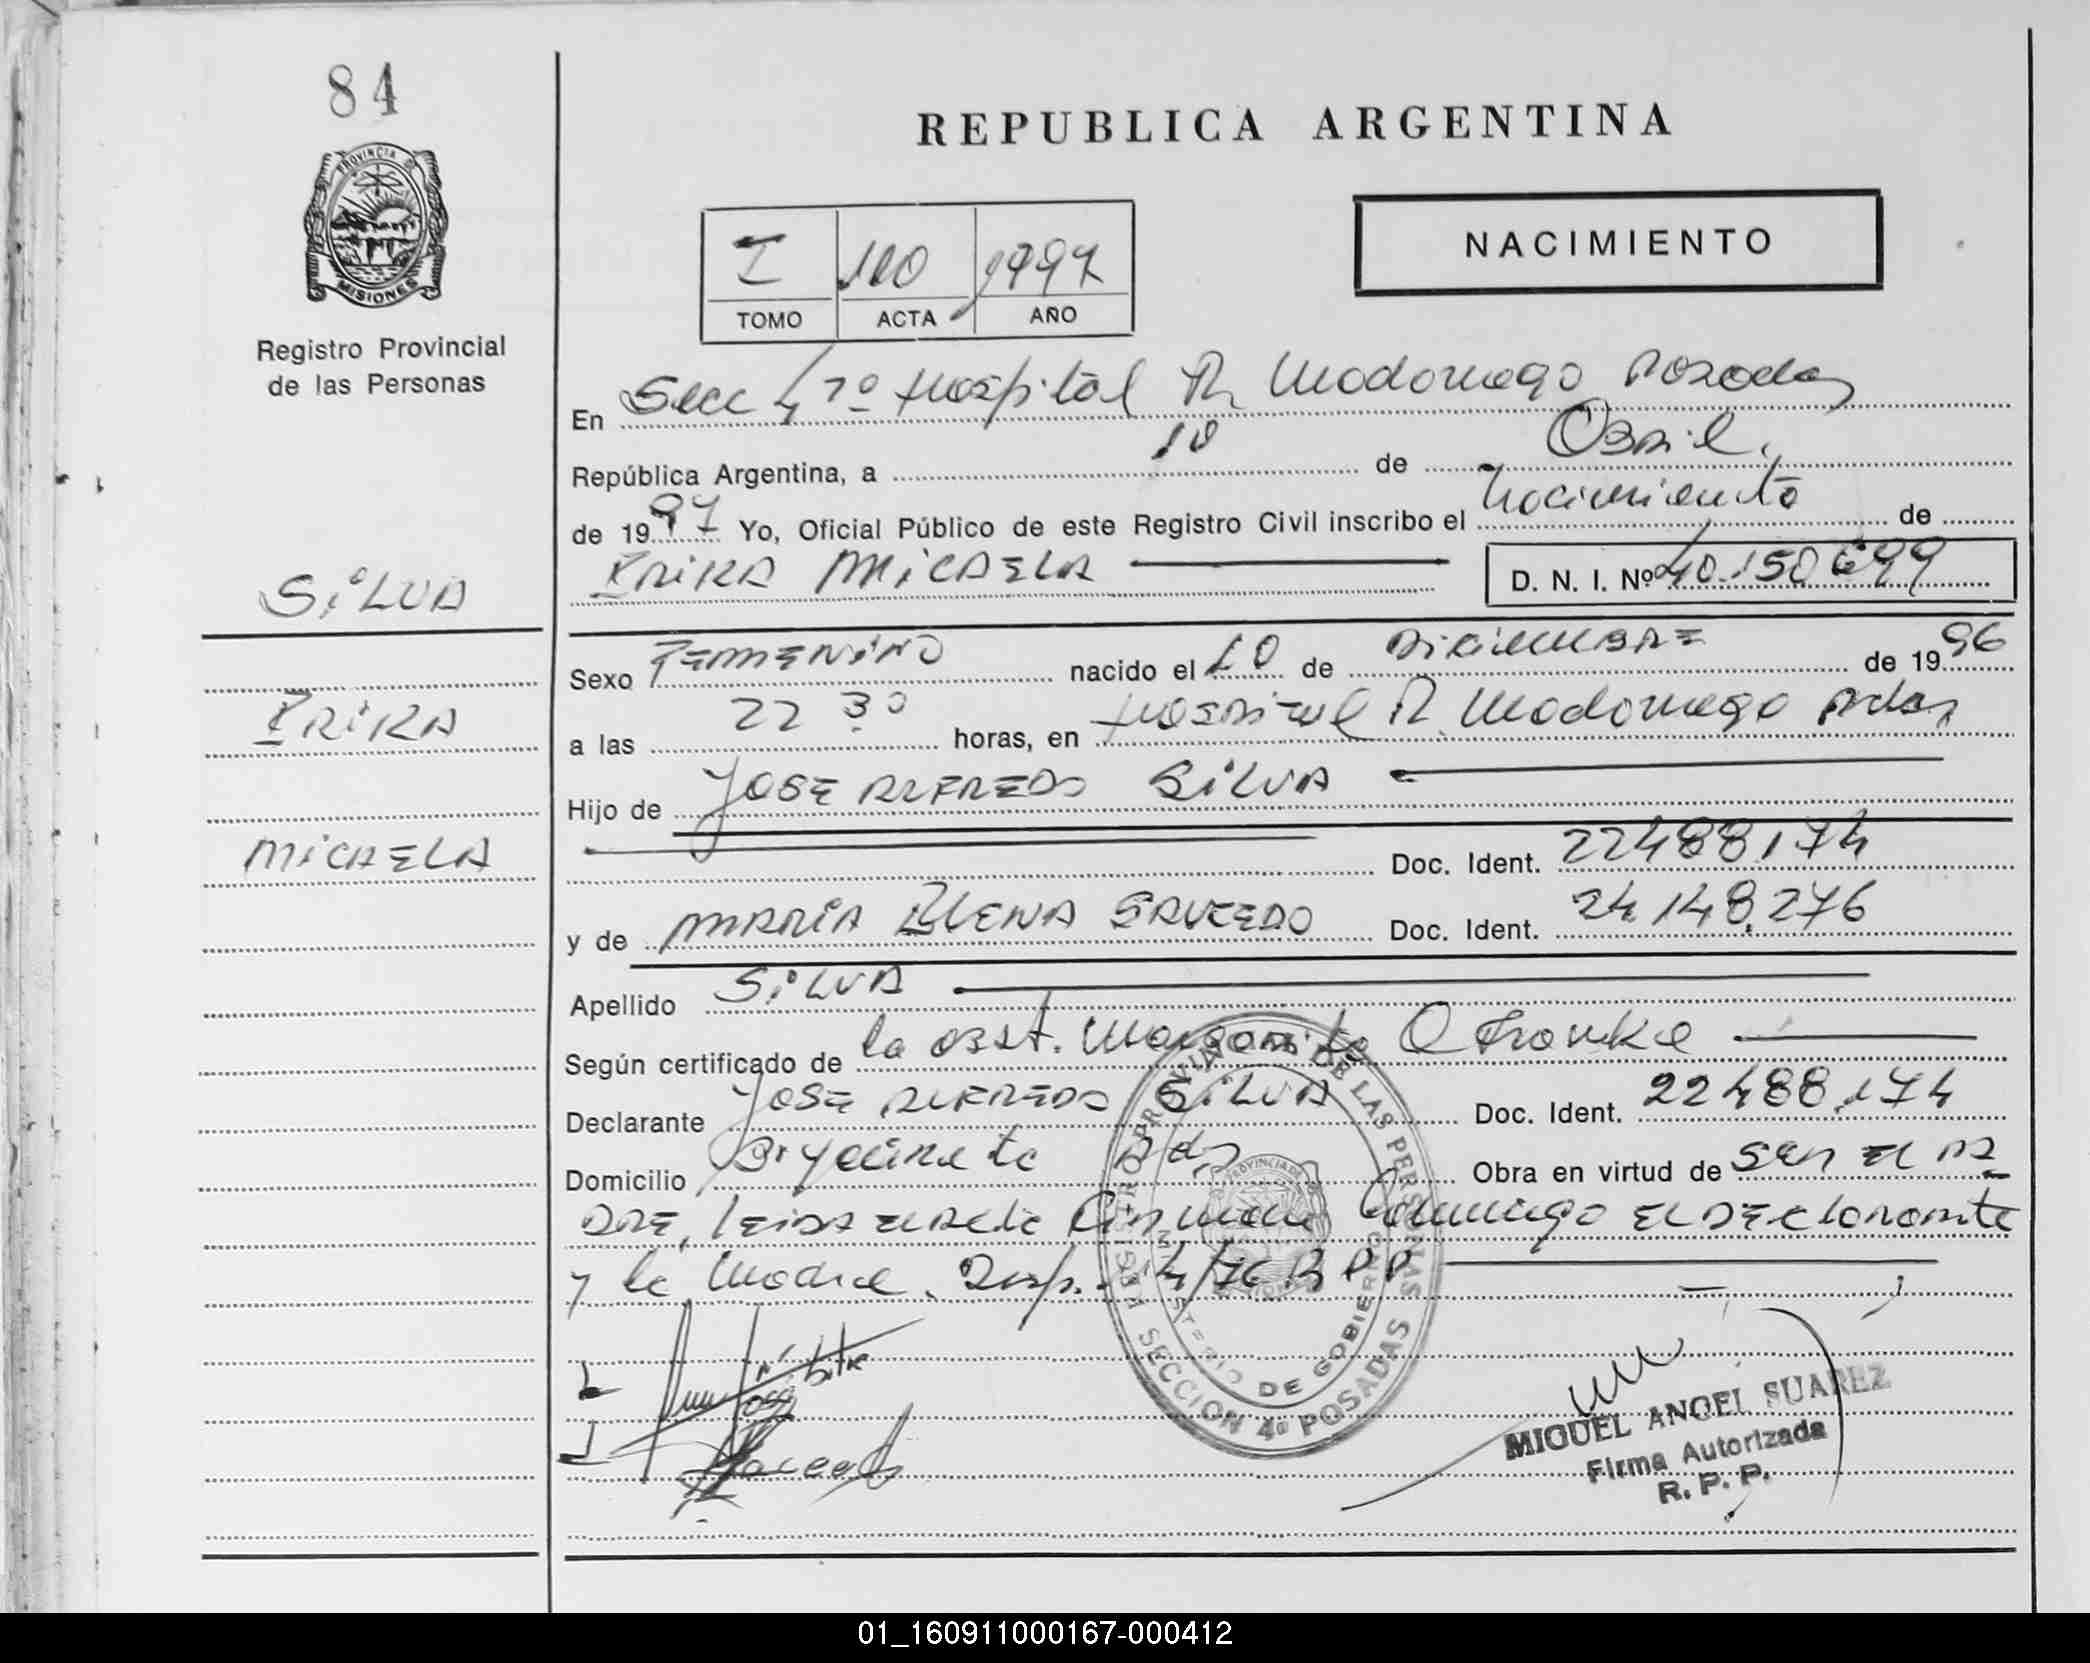 84
REPUBLICA ARGENTINA
PROVINCIA DE
MISIONES
Registro Provincial
de las Personas
NACIMIENTO
I 110 1997
TOMO ACTA AÑO
En Secc 4ª Hospital R Madariaga Posadas
República Argentina, a 10 de Abril
de 1997 Yo, Oficial Público de este Registro Civil inscribo el nacimiento de
ERIKA MICAELA D. N. I. Nº 40.150.699
SILVA
Sexo FEMENINO nacido el 10 de DICIEMBRE de 1996
ERIKA
a las 22 30 horas, en Hospital R Madariaga Pdas
Hijo de JOSE ALFREDO SILVA
MICAELA
Doc. Ident. 22488174
y de MARIA ELENA SAUCEDO Doc. Ident. 24.148.276
Apellido SILVA
Según certificado de la obst. Margarita
Declarante JOSE ALFREDO SILVA Doc. Ident. 22488.174
Domicilio Pdas Obra en virtud de SER EL PA
DRE, LEIDA el Acta Firman conmigo EL DEclarante
y la Madre. Disp. 4/76 R P P
REGISTRO PROVINCIAL DE LAS PERSONAS
MINISTERIO DE GOBIERNO
SECCION 4ª POSADAS
MIGUEL ANGEL SUAREZ
Firma Autorizada
R. P. P.
01_160911000167-000412